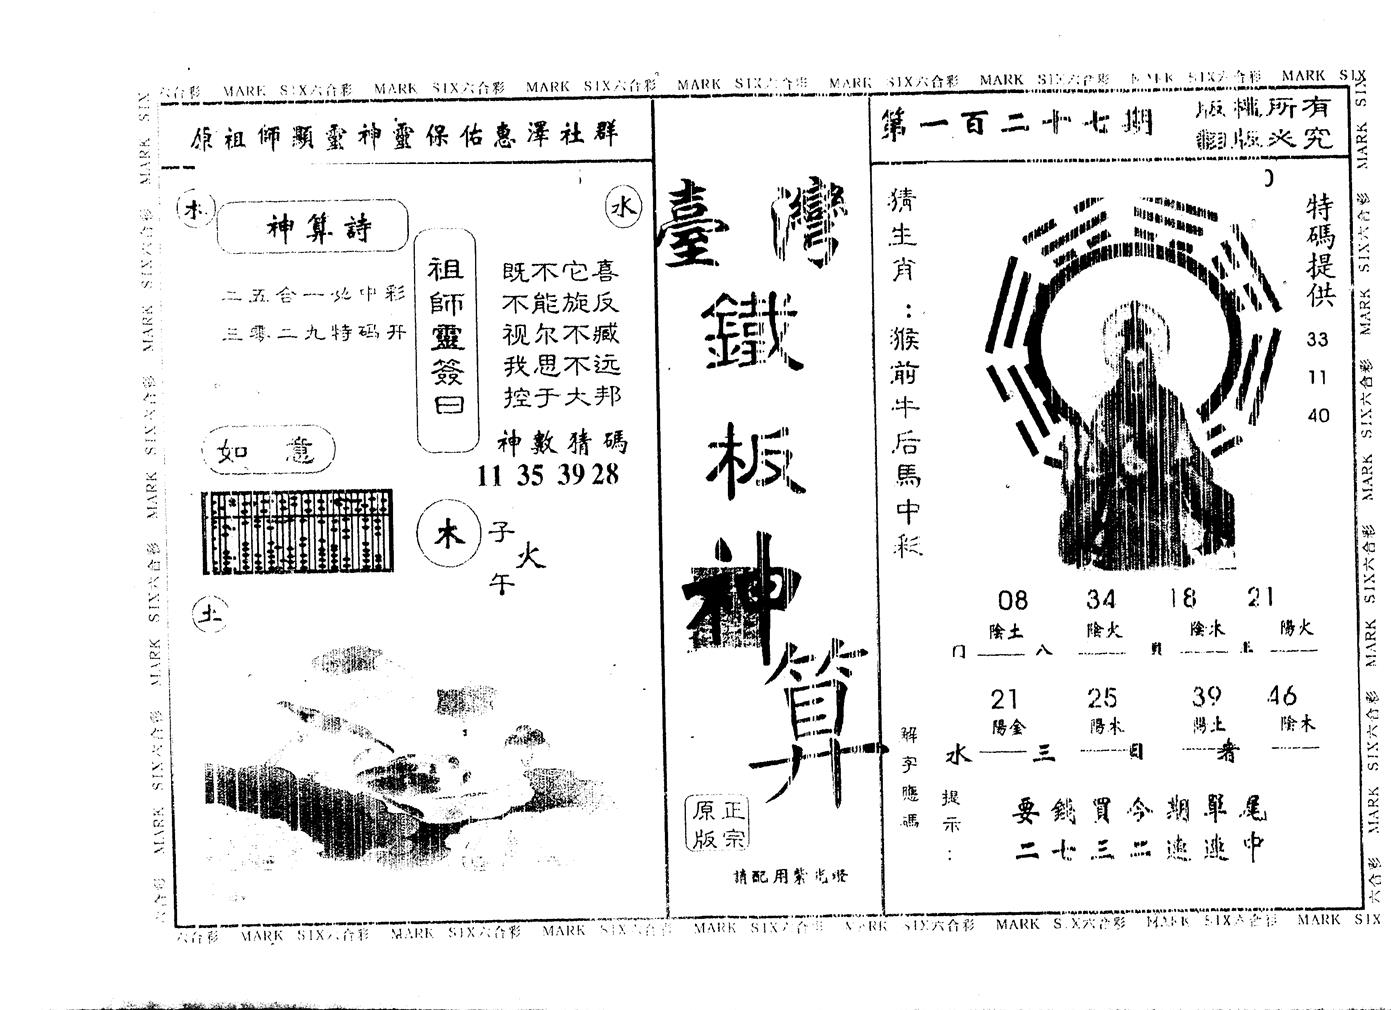 MARK SIX六合彩 MARK SIX六合彩 MARK SIX六合彩 MARK SIX六合彩 MARK SIX六合彩 MARK SIX
原祖師顯靈神靈保佑惠澤社群
木
水
神算詩
二五合一必中彩
三零二九特码开
祖師靈簽曰
既不它喜
不能旋反
视尔不臧
我思不远
控于大邦
神數猜碼
11 35 39 28
如意
木
子
火
午
土
臺灣
鐵
板
神
算
正宗
原版
請配用紫光燈
第一百二十七期
版權所有
翻版必究
猜生肖：猴前牛后馬中彩
特碼提供
33
11
40
08 34 18 21
陰土 陰火 陰水 陽火
21 25 39 46
陽金 陽木 陽土 陰木
水 三 日 者
解字應碼
提示：
要錢買今期單尾
二七三二連連中
MARK SIX六合彩 MARK SIX六合彩 MARK SIX六合彩 MARK SIX六合彩 MARK SIX六合彩 MARK SIX